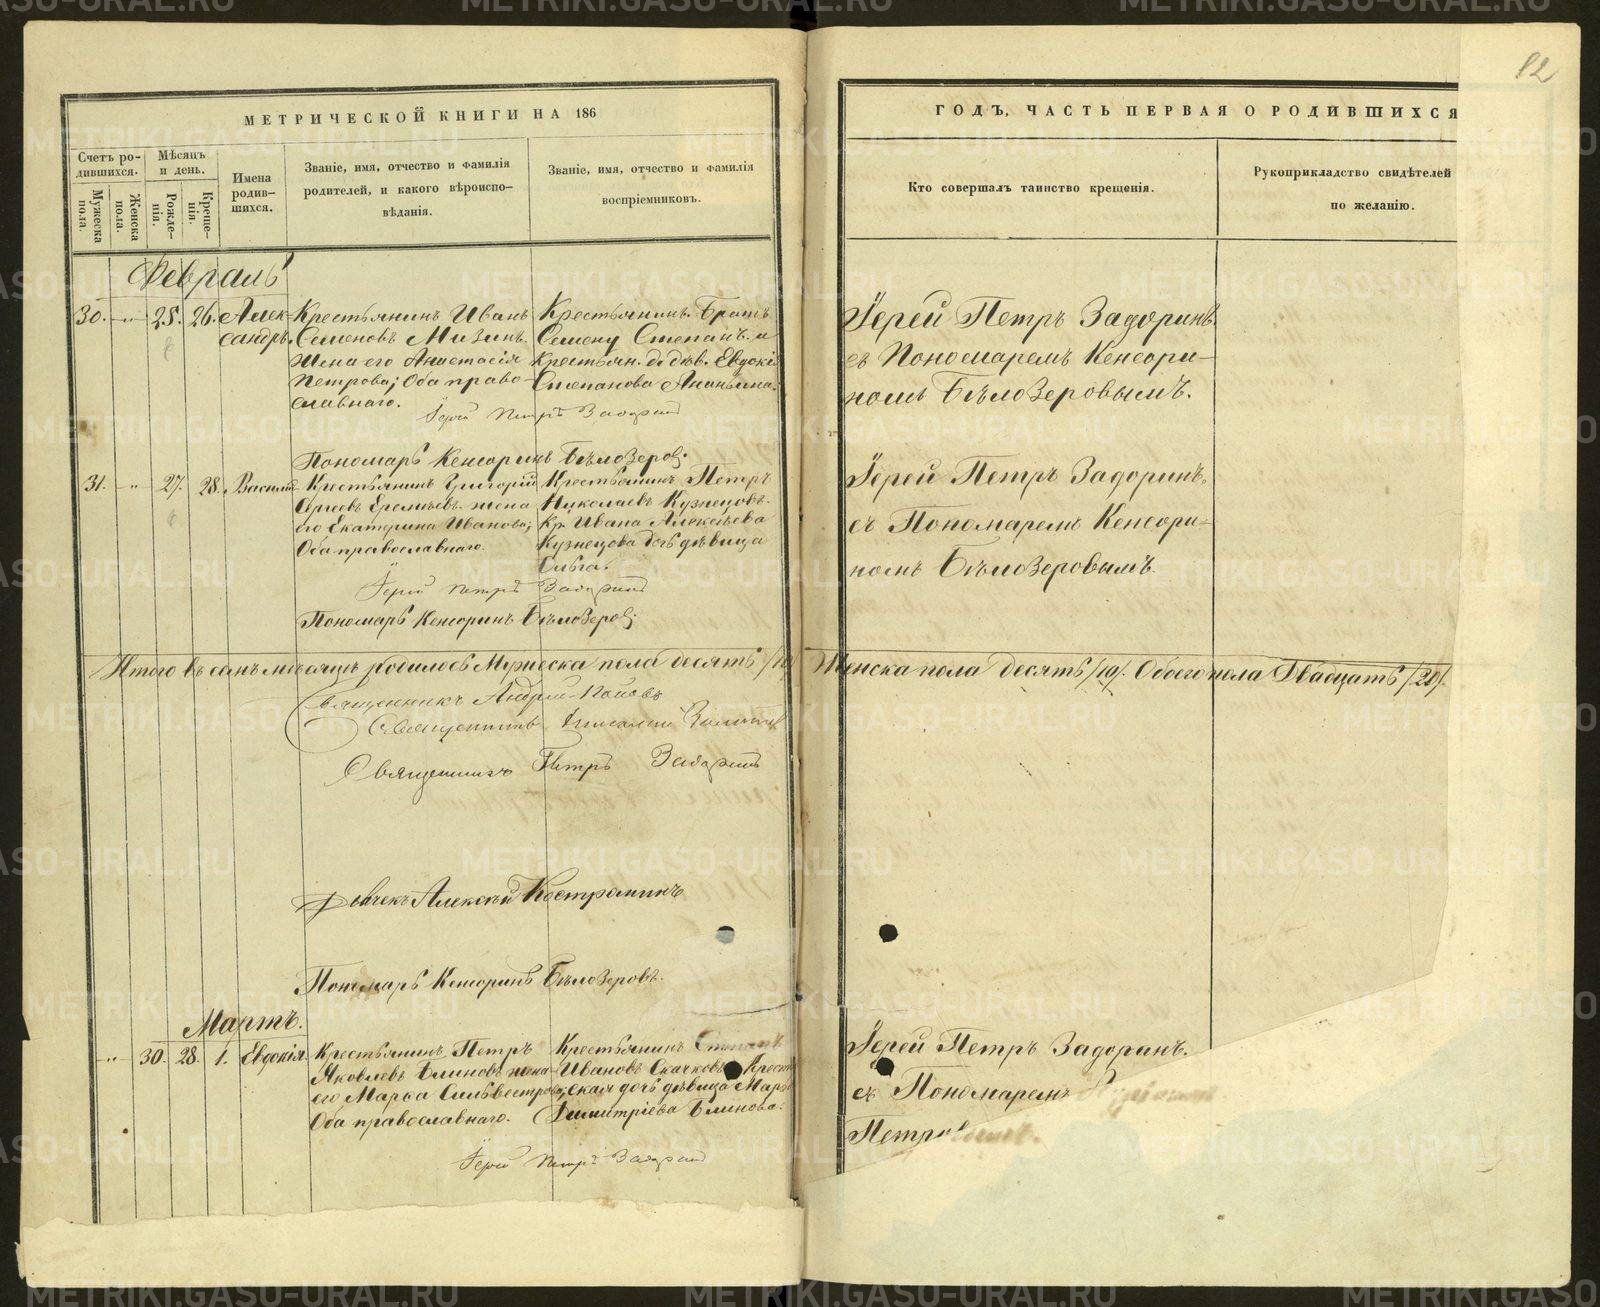 МЕТРИЧЕСКОЙ КНИГИ НА 186
Счетъ ро-
дившихся.
Мужеска
пола.
Женска
пола.
Мѣсяцъ
и день.
Рожде-
нія.
Креще-
нія.
Имена
родив-
шихся.
Званіе, имя, отчество и фамилія
родителей, и какого вѣроиспо-
вѣданія.
Званіе, имя, отчество и фамилія
воспріемниковъ.
Февраль
30. -"- 25. 26. Алек-
сандръ.
Крестьянинъ Иванъ
Семеновъ Мизинъ.
Жена его Анастасія
Петрова; Оба право-
славнаго.
Крестьянинъ. Братъ
Семену Степан. и
Крестьян. д. дѣв. Евдокі
Степанова Ананьина.
Іерей Петръ Задоринъ
Пономарь Кенсоринъ Бѣлозеров;
31. -"- 27. 28. Василій
Крестьянинъ Григорій
Сергѣевъ Еремѣевъ. жена
его Екатерина Иванова;
Оба православнаго.
Крестьянинъ Петръ
Николаевъ Кузнецовъ.
Кр. Ивана Алексѣева
Кузнецова дочь дѣвица
Ольга.
Іерей Петръ Задоринъ
Пономарь Кенсоринъ Бѣлозеров;
Итого въ семъ мѣсяцѣ родилось Мужеска пола десять /10/
Священникъ Андрей Поповъ
Священникъ
Священникъ Петръ Задоринъ
Дьячекъ Алексѣй Костроминъ
Пономарь Кенсоринъ Бѣлозеровъ.
Мартъ.
-"- 30. 28. 1. Евдокія.
Крестьянинъ Петръ
Яковлевъ Блиновъ жена
его Марѳа Сильвестрова;
Оба православнаго.
Крестьянинъ Степанъ
Ивановъ Скачковъ Крест
ская дочь дѣвица Марѳ
Димитріева Блинова.
Іерей Петръ Задоринъ
12
ГОДЪ, ЧАСТЬ ПЕРВАЯ О РОДИВШИХСЯ
Кто совершалъ таинство крещенія.
Рукоприкладство свидѣтелей
по желанію.
Іерей Петръ Задоринъ.
съ Пономаремъ Кенсори-
номъ Бѣлозеровымъ.
Іерей Петръ Задоринъ.
съ Пономаремъ Кенсори-
номъ Бѣлозеровымъ.
Женска пола десять /10/. Обоего пола Двадцать /20/.
Іерей Петръ Задоринъ.
съ Пономаремъ
Петров
METRIKI.GASO-URAL.RU